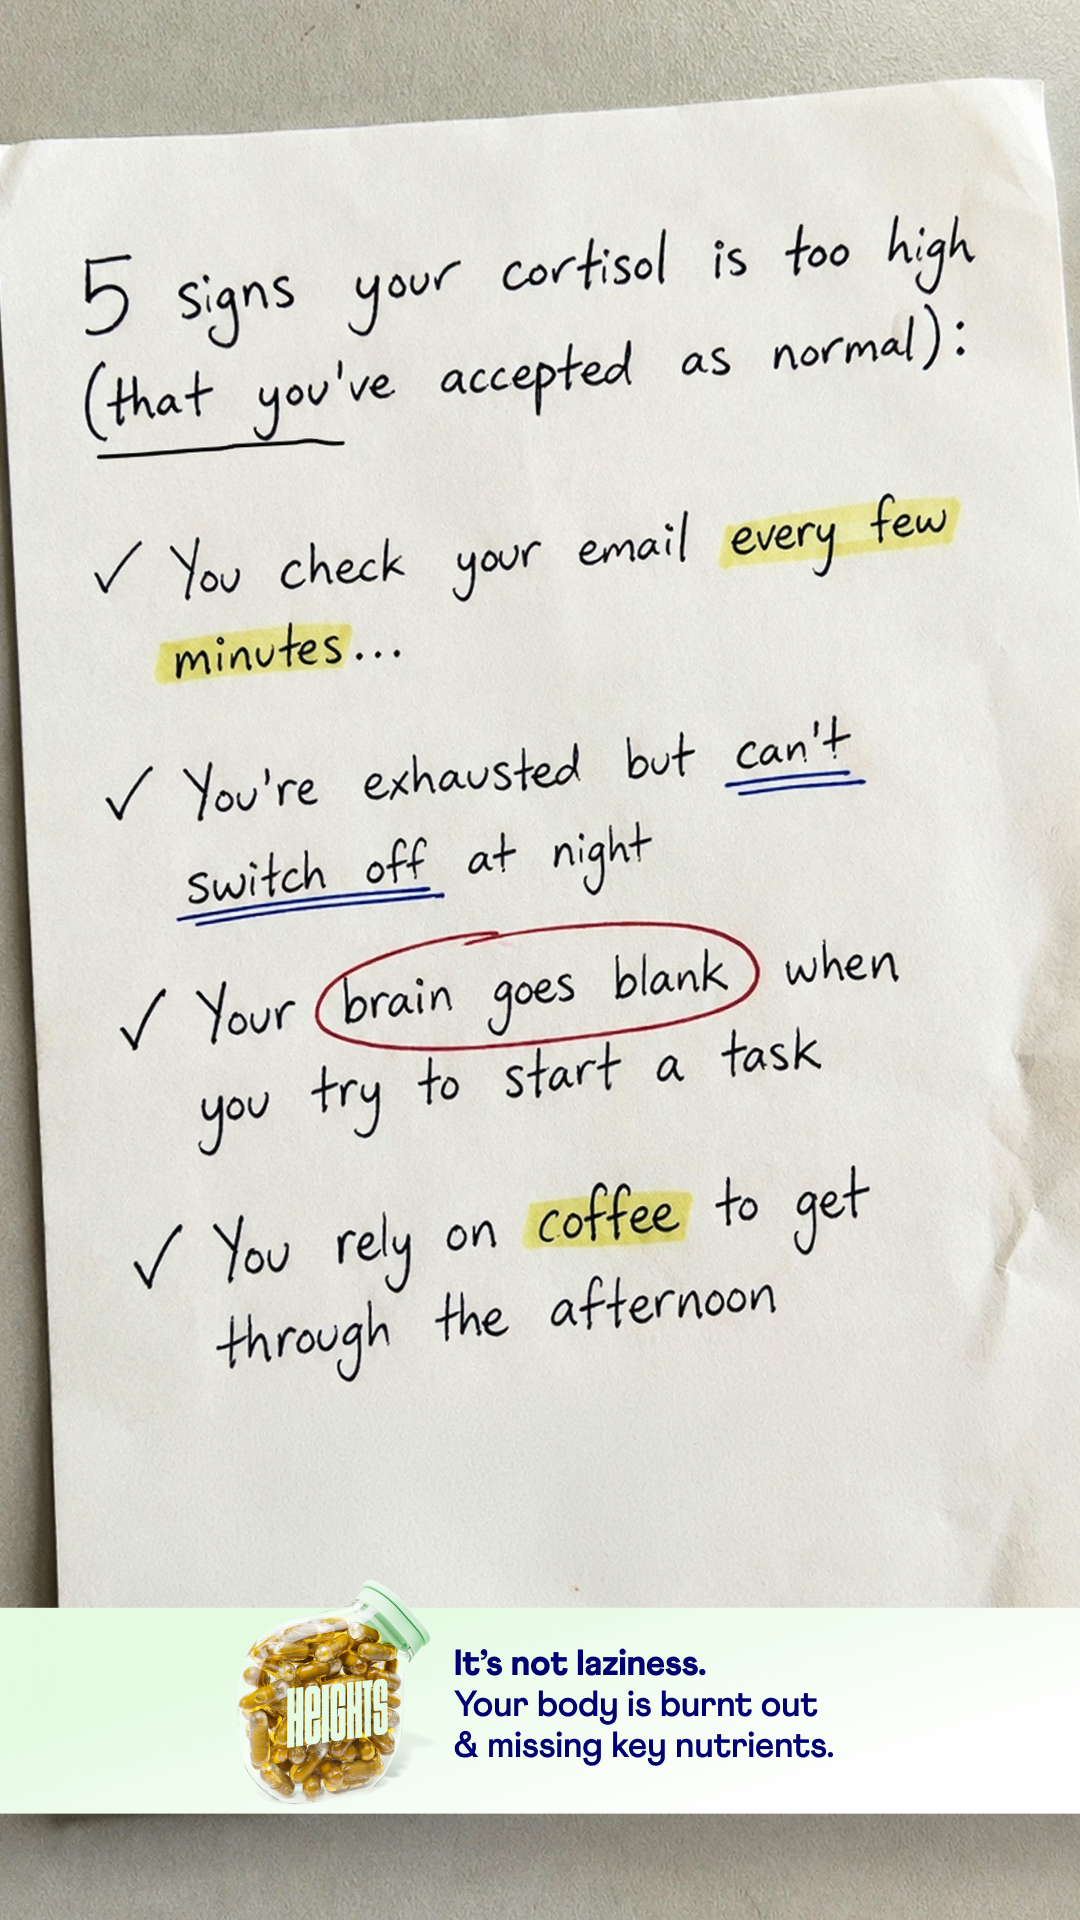 5 signs your cortisol is too high
(that you've accepted as normal):
✓ You check your email every few
minutes...
✓ You're exhausted but can't
switch off at night
✓ Your brain goes blank when
you try to start a task
✓ You rely on coffee to get
through the afternoon
HEIGHTS
It's not laziness.
Your body is burnt out
& missing key nutrients.